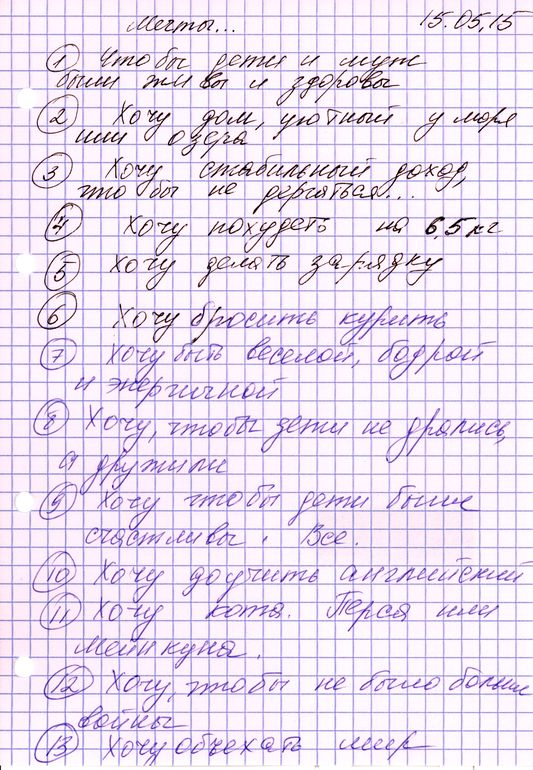 Мечты... 15.05.15
① Чтобы дети и муж
были живы и здоровы
② Хочу дом, уютный у моря
или озера
③ Хочу стабильный доход,
что бы не дергаться...
④ Хочу похудеть на 6,5 кг
⑤ Хочу делать зарядку
⑥ Хочу бросить курить
⑦ Хочу быть веселой, бодрой
и энергичной
⑧ Хочу, чтобы дети не дрались,
а дружили
⑨ Хочу чтобы дети были
счастливы. Все.
⑩ Хочу доучить английский
⑪ Хочу кота. Перса или
мейнкуна.
⑫ Хочу, чтобы не было больше
войны
⑬ Хочу объехать мир